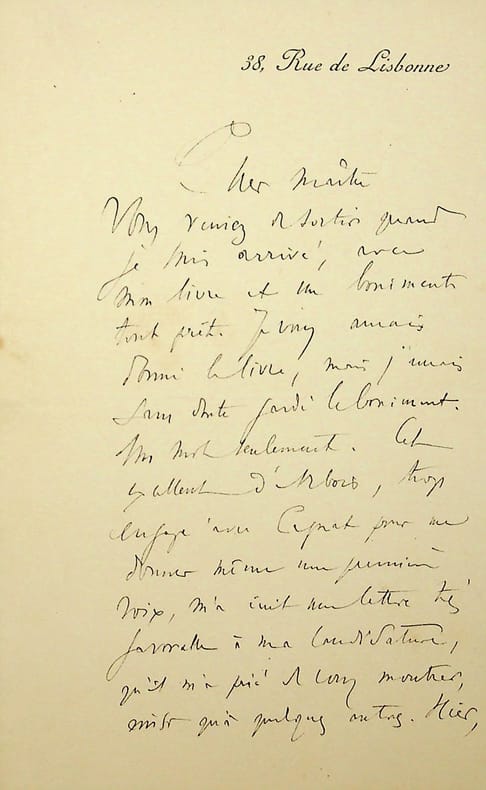 38, Rue de Lisbonne
Cher Maître
Vous veniez de sortir quand
je suis arrivé, avec
mon livre et un boniment
tout prêt. Je vous aurais
donné le livre, mais j'aurais
sans doute gardé le boniment.
Un mot seulement. Cet
excellent d'Arbois, trop
engagé avec Cagnat pour me
donner même une première
voix, m'a écrit une lettre très
favorable à ma candidature,
qu'il m'a prié de vous montrer,
ainsi qu'à quelques autres. Hier,